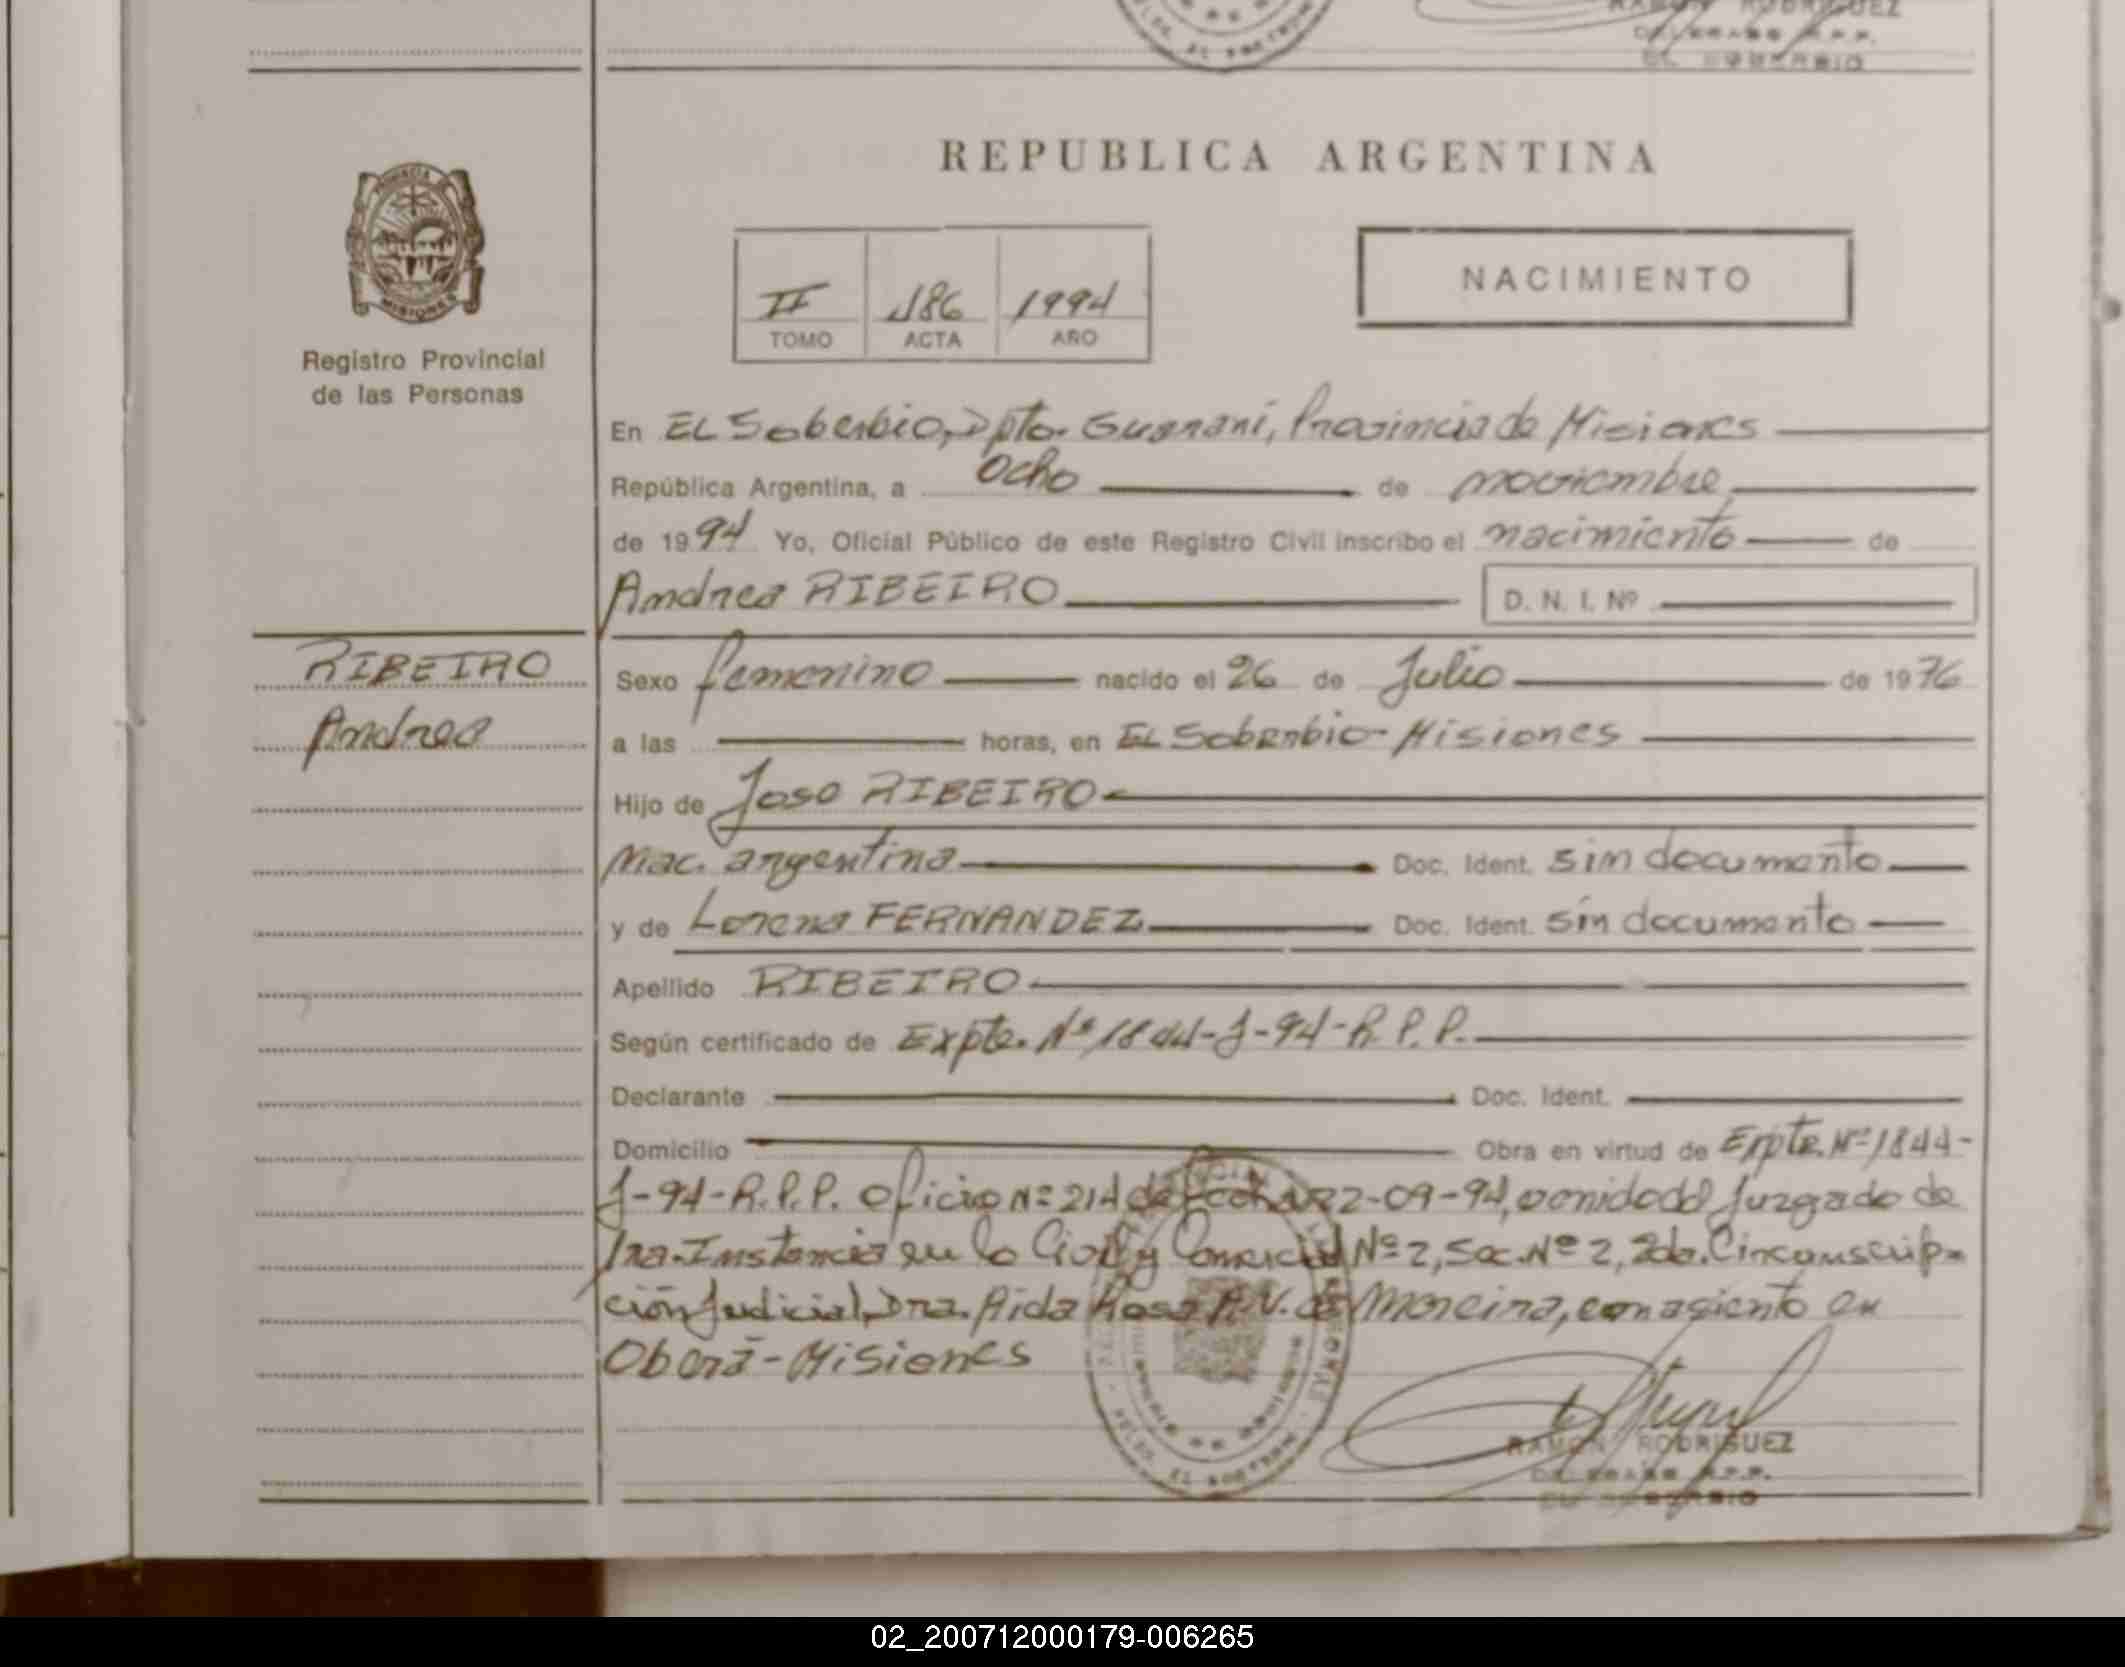 RAMON RODRIGUEZ
DELEGADO R.P.P.
EL SOBERBIO
REPUBLICA ARGENTINA
PROVINCIA DE MISIONES
Registro Provincial
de las Personas
II 186 1994
TOMO ACTA AÑO
NACIMIENTO
En EL Soberbio, Dpto. Guaraní, Provincia de Misiones
República Argentina, a Ocho de noviembre
de 1994 Yo, Oficial Público de este Registro Civil inscribo el nacimiento de
Andrea RIBEIRO D. N. I. Nº
RIBEIRO
Andrea
Sexo femenino nacido el 26 de Julio de 1976
a las horas, en EL Soberbio-Misiones
Hijo de Joso RIBEIRO
Nac. argentina Doc. Ident. sin documento
y de Lorena FERNANDEZ Doc. Ident. sin documento
Apellido RIBEIRO
Según certificado de Expte. Nº 1844-J-94-R.P.P.
Declarante Doc. Ident.
Domicilio Obra en virtud de Expte. Nº 1844-
J-94-R.P.P. Oficio Nº 214 de fecha 22-09-94, venido del Juzgado de
1ra. Instancia en lo Civil y Comercial Nº 2, Sec. Nº 2, 2da. Circunscrip-
ción Judicial, Dra. Aida Rosa A.V. de Moreira, con asiento en
Oberá-Misiones
RAMON RODRIGUEZ
DELEGADO R.P.P.
EL SOBERBIO
02_200712000179-006265